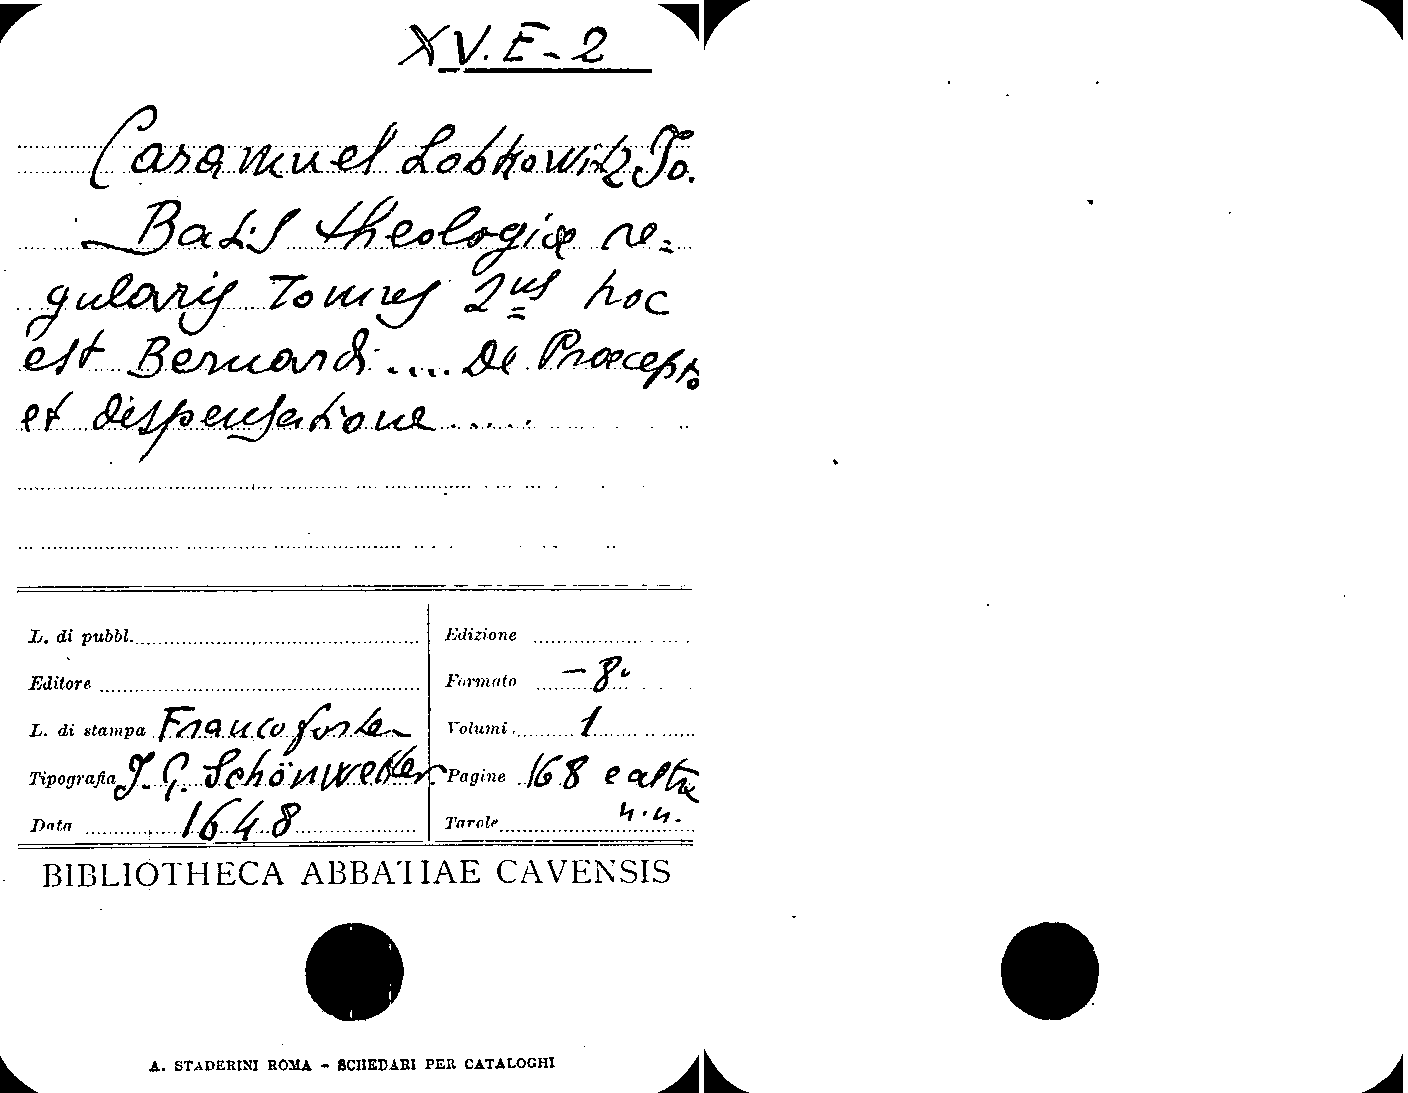 XV. E - 2
Caramuel Lobkowitz Jo.
Basis theologiæ re=
gularis Tomus 2us hoc
est Bernardi .... De Præcepto
et dispensatione .....
L. di pubbl. Edizione
Editore Formato - 8°
L. di stampa Francoforte Volumi 1
Tipografia J. G. Schönwetter Pagine 168 e altre
Data 1648 Tavole n.n.
BIBLIOTHECA ABBATIAE CAVENSIS
A. STADERINI ROMA - SCHEDARI PER CATALOGHI